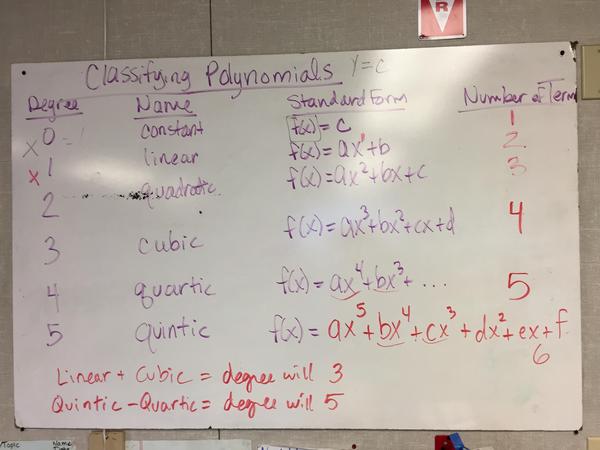 R
Classifying Polynomials y=c
Degree Name Standard Form Number of Term
x⁰=1 constant f(x)=c 1
x¹ linear f(x)=ax¹+b 2
2 quadratic f(x)=ax²+bx+c 3
3 cubic f(x)=ax³+bx²+cx+d 4
4 quartic f(x)=ax⁴+bx³+... 5
5 quintic f(x)=ax⁵+bx⁴+cx³+dx²+ex+f 6
Linear + Cubic = degree will 3
Quintic - Quartic = degree will 5
Topic Name